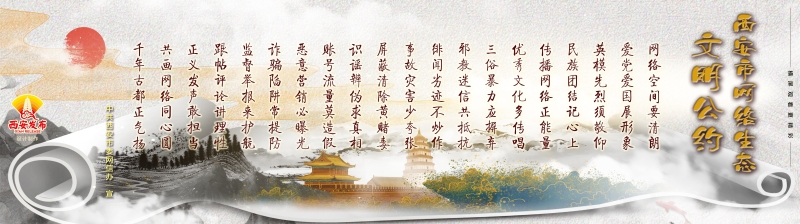 西安市网络生态
文明公约
网络空间要清朗
爱党爱国展形象
英模先烈须敬仰
民族团结记心上
传播网络正能量
优秀文化多传唱
三俗暴力应摒弃
邪教迷信共抵抗
绯闻劣迹不炒作
事故灾害少夸张
屏蔽清除黄赌毒
识谣辩伪求真相
账号流量莫造假
恶意营销必曝光
诈骗陷阱常提防
监督举报来护航
跟帖评论讲理性
正义发声敢担当
共画网络同心圆
千年古都正气扬
西安发布